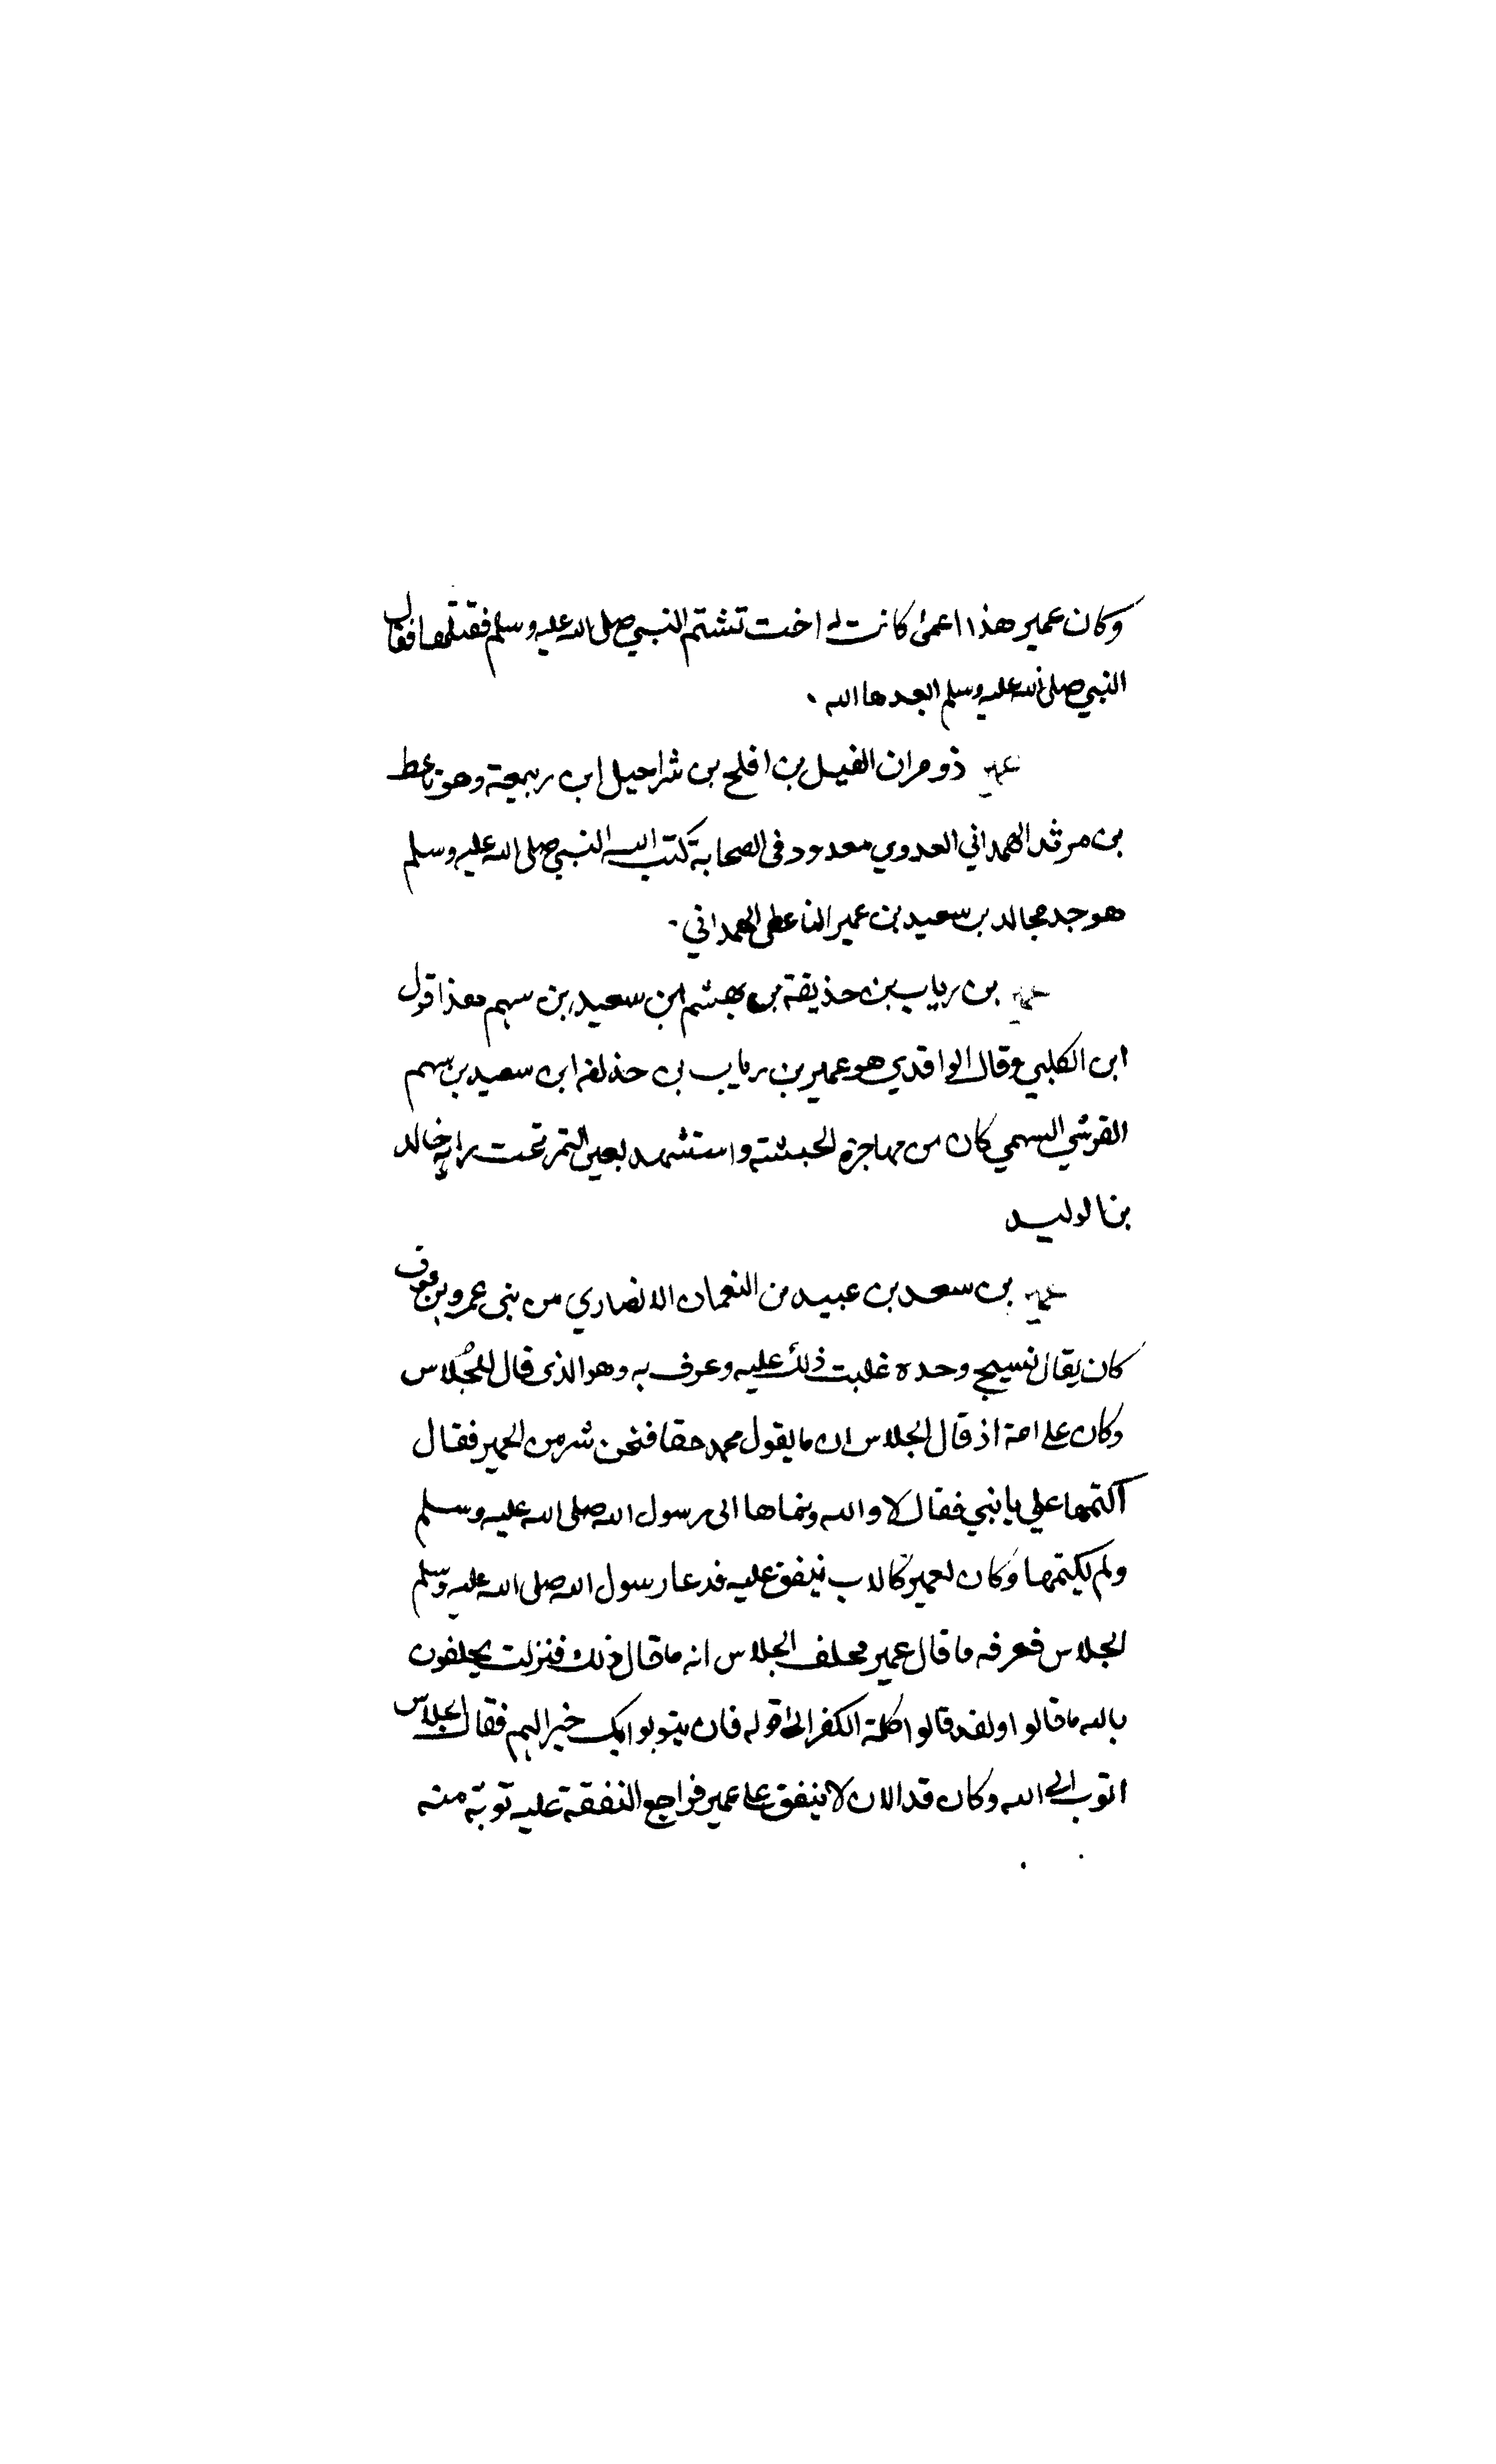 وكان عمير هذا اعمى كانت له اخت تشتم النبي صلى الله عليه وسلم فقتلها فقال
النبي صلى الله عليه وسلم ابعدها الله .
عمير ذو مران الفيل بن افلح بن شراحيل ابن ربيعة وهو ناعط
بن مرثد الهمداني العدوي معدود في الصحابة كتب اليه النبي صلى الله عليه وسلم
هو جد مجالد بن سعيد بن عمير الناعطى الهمداني .
عمير بن رياب بن حذيقة بن بهشم ابن سعيد بن سهم هذا قول
ابن الكلبي وقال الواقدي هو عمير بن رياب بن حذافه ابن سعيد بن سهم
القرشي السهمي كان من مهاجرة الحبشة واستشهد بعين التمر تحت راية خالد
بن الوليد
عمير بن سعد بن عبيد بن النعمان الانصاري من بني عمرو بن عوف
كان يقال نسيج وحده غلبت ذلك عليه وعرف به وهو الذي قال للجُلاس
وكان على امة اذ قال الجلاس ان ما يقول محمد حقا فنحن شر من الحمير فقال
اكتمها علي يا بني فقال لا والله ونماها الى رسول الله صلى الله عليه وسلم
ولم يكتمها وكان لعمير كالاب ينفق عليه فدعا رسول الله صلى الله عليه وسلم
الجلاس فعرفه ما قال عمير فحلف الجلاس انه ما قال ذلك فنزلت يحلفون
بالله ما قالوا ولقد قالوا كلمة الكفر الى قوله فان يتوبوا يك خيرا لهم فقال الجلاس
اتوب الى الله وكان قد الان لا ينفق على عمير فراجع النفقة عليه توبة منه